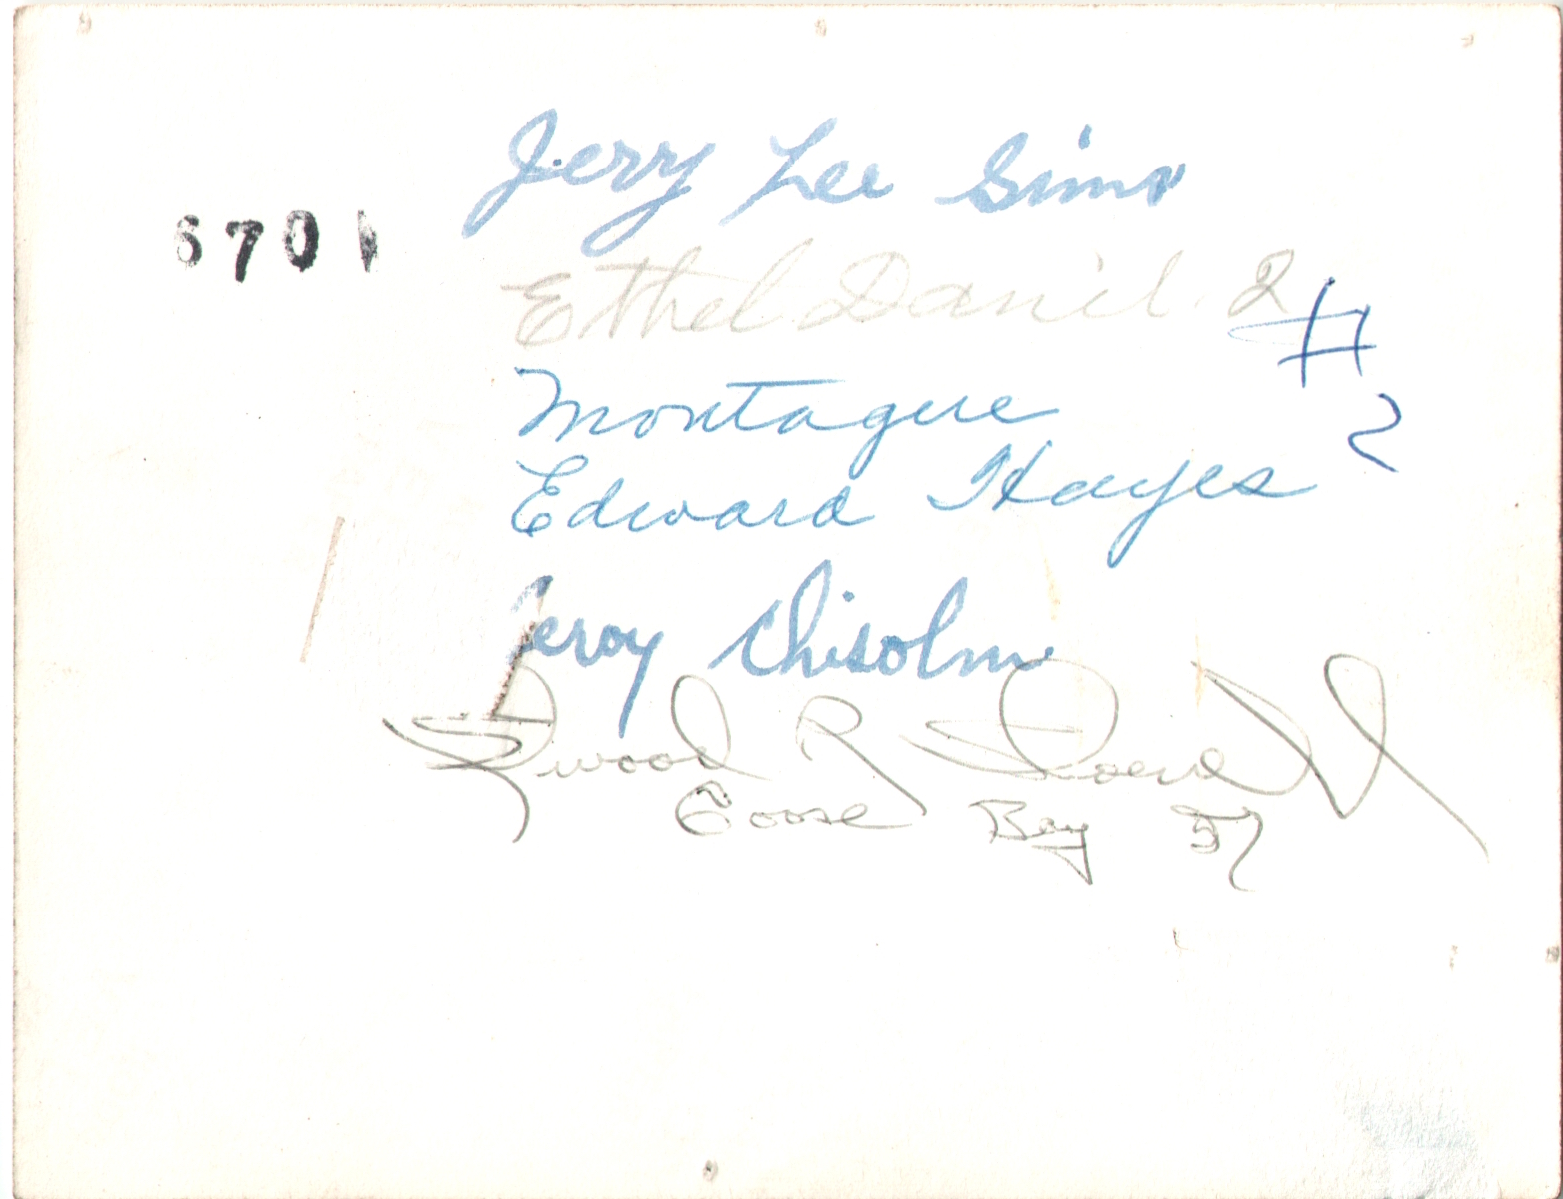 Jerry Lee Sims
6701
Ethel Danil 2
#
Montague
2
Edward Hayes
Leroy Chisolm
Elwood P
Goose Bay 57